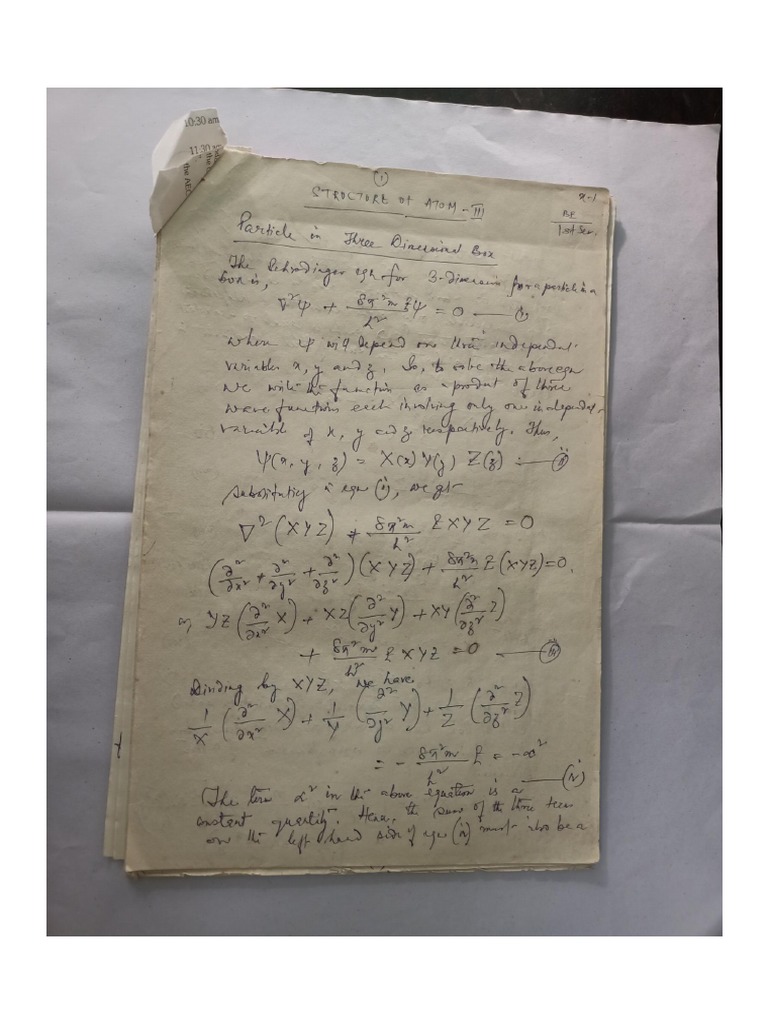 10:30 am
11:30
the AEC
①
STRUCTURE OF ATOM - III
x-1
BE
1st Sem.
Particle in Three Dimensional Box
The Schrodinger eqn for 3-dimensions for a particle in a
box is,
∇²Ψ + 8π²m/h² EΨ = 0 — (i)
where Ψ will depend on three independent
variables x, y and z. So, to solve the above eqn
we write the function as a product of three
wave functions each involving only one independent
variable of x, y and z respectively. Thus,
Ψ(x, y, z) = X(x) Y(y) Z(z) — (ii)
Substituting in eqn (i), we get
∇²(XYZ) + 8π²m/h² EXYZ = 0
(∂²/∂x² + ∂²/∂y² + ∂²/∂z²)(XYZ) + 8π²m/h² E(XYZ) = 0.
or, YZ(∂²/∂x² X) + XZ(∂²/∂y² Y) + XY(∂²/∂z² Z)
+ 8π²m/h² EXYZ = 0 — (iii)
Dividing by XYZ, we have
1/X (∂²/∂x² X) + 1/Y (∂²/∂y² Y) + 1/Z (∂²/∂z² Z)
= - 8π²m/h² E = -α² — (iv)
The term α² in the above equation is a
constant quantity. Hence, the sum of the three
on the left hand side of eqn (iv) must also be a